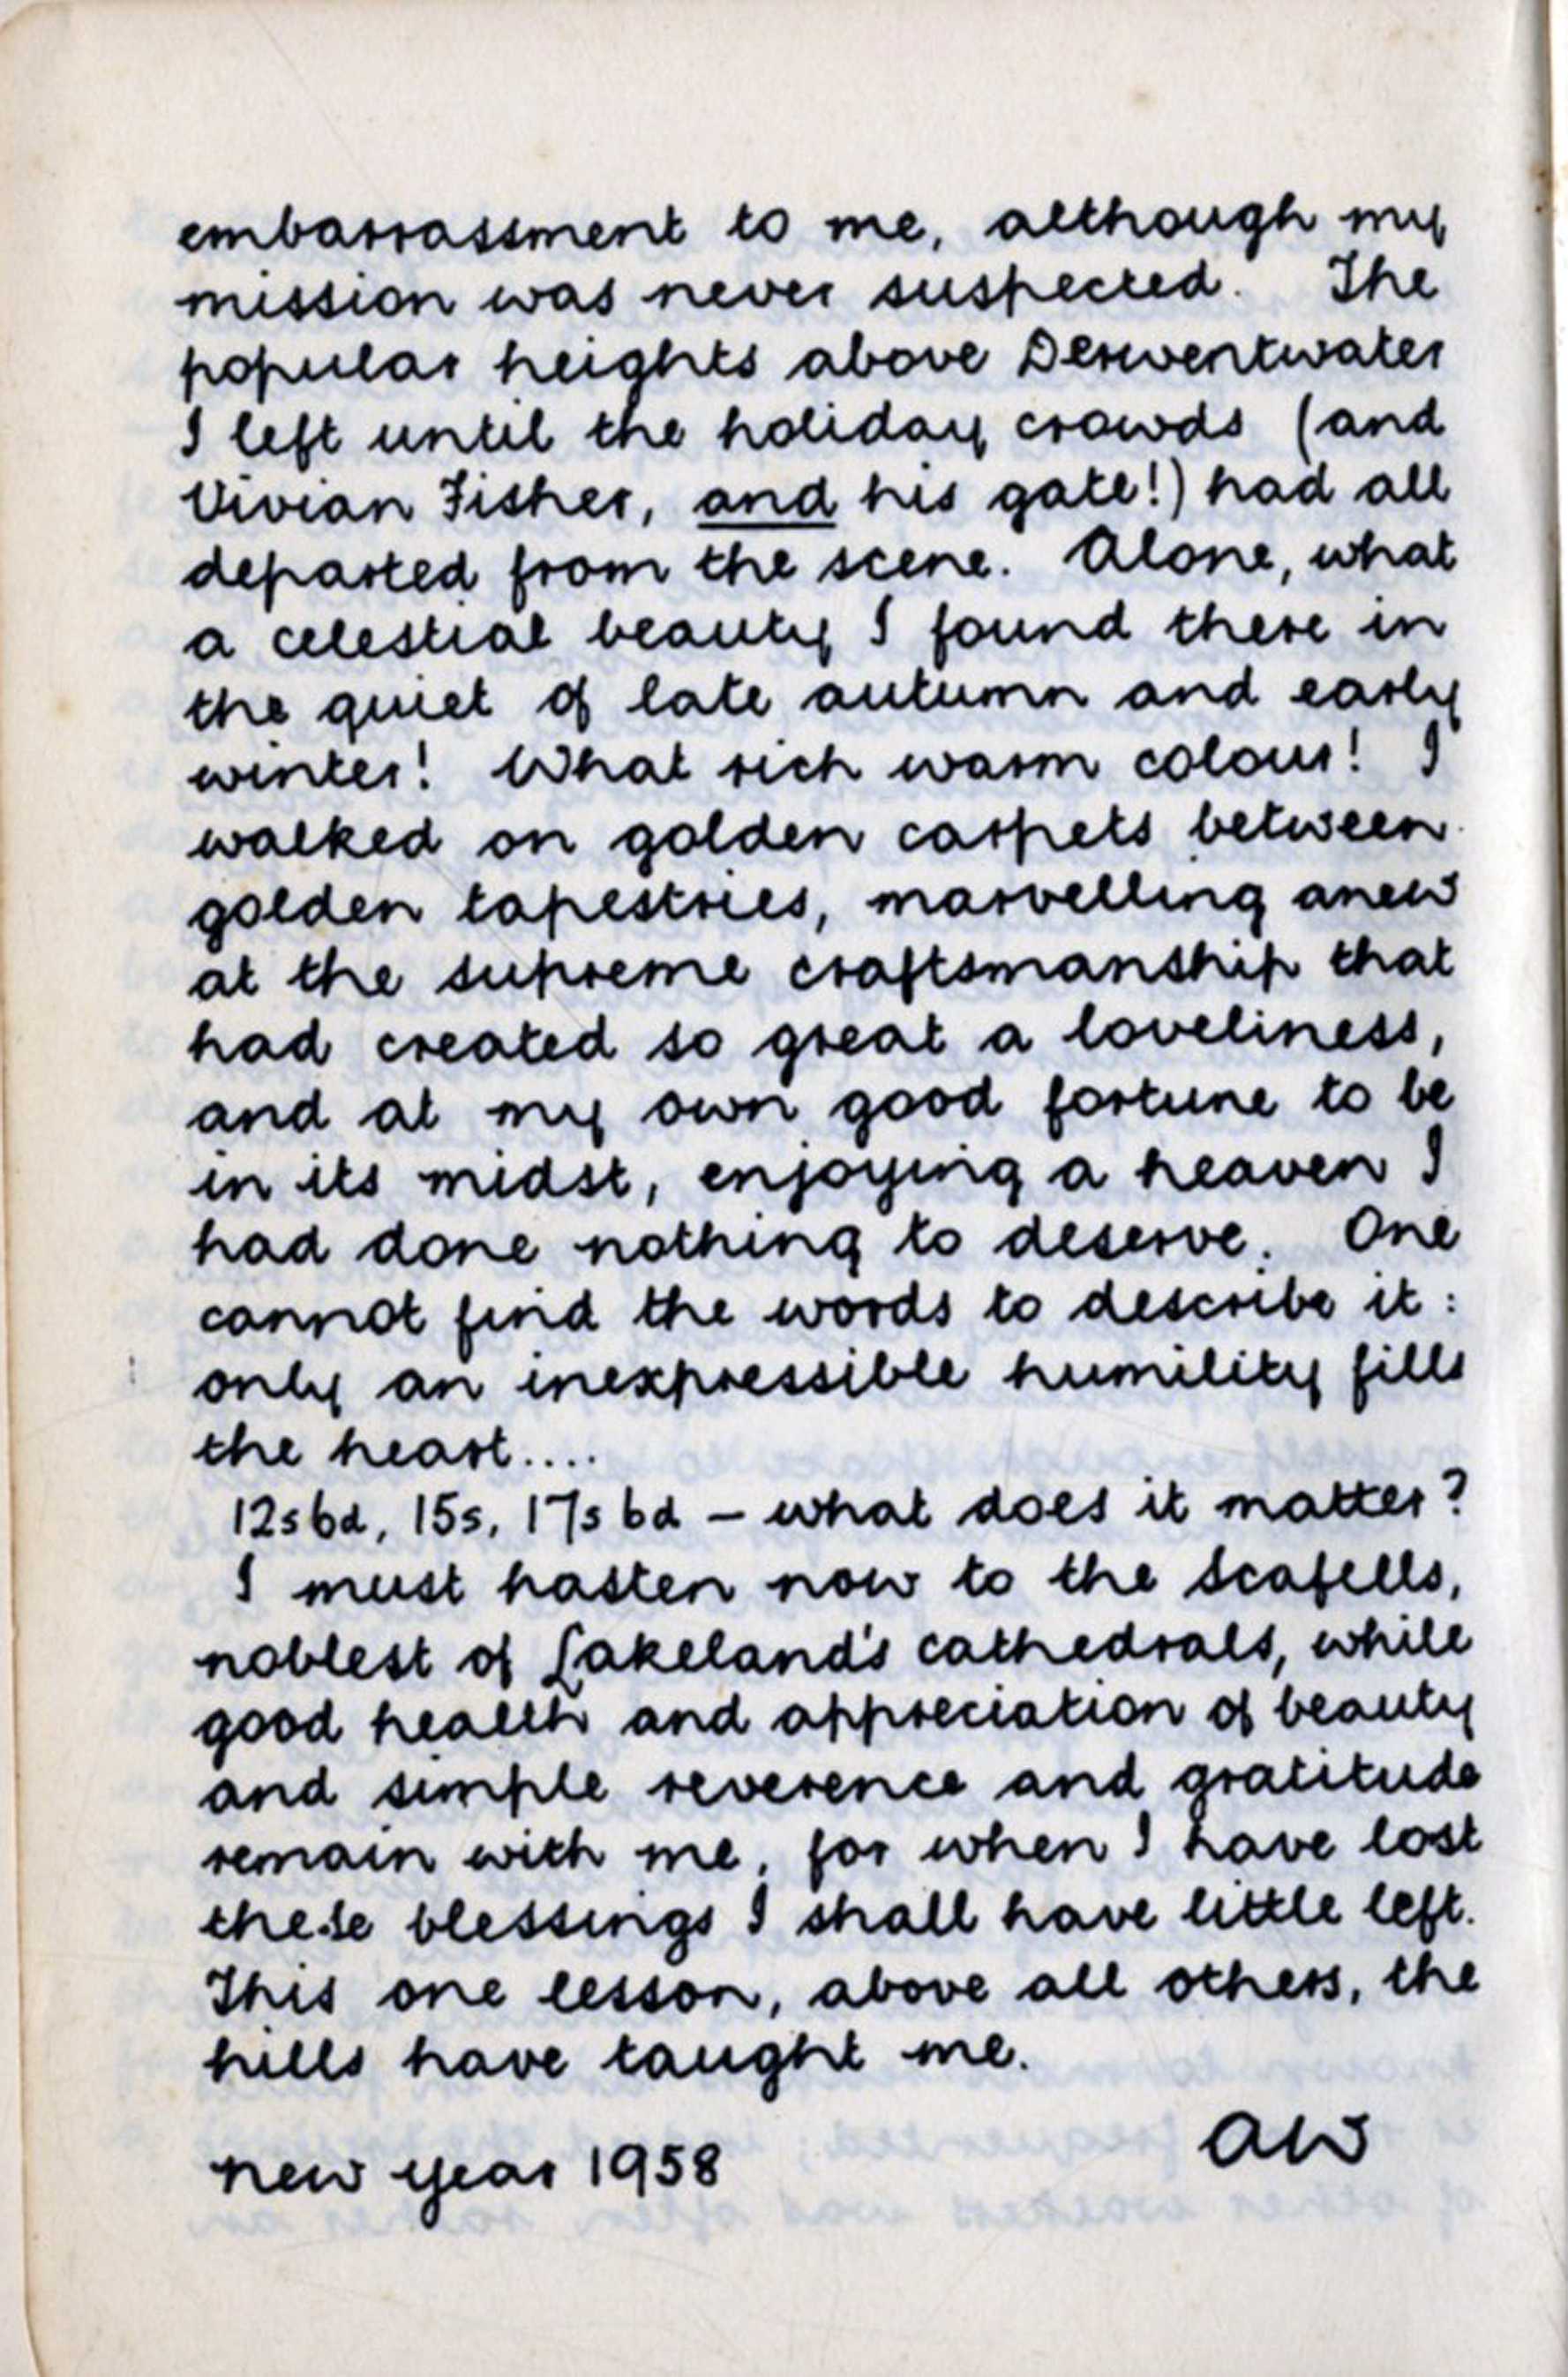 embarrassment to me, although my
mission was never suspected. The
popular heights above Derwentwater
I left until the holiday crowds (and
Vivian Fisher, and his gate!) had all
departed from the scene. Alone, what
a celestial beauty I found there in
the quiet of late autumn and early
winter! What rich warm colour! I
walked on golden carpets between
golden tapestries, marvelling anew
at the supreme craftsmanship that
had created so great a loveliness,
and at my own good fortune to be
in its midst, enjoying a heaven I
had done nothing to deserve. One
cannot find the words to describe it:
only an inexpressible humility fills
the heart....
12s6d, 15s, 17s6d – what does it matter?
I must hasten now to the Scafells,
noblest of Lakeland's cathedrals, while
good health and appreciation of beauty
and simple reverence and gratitude
remain with me, for when I have lost
these blessings I shall have little left.
This one lesson, above all others, the
hills have taught me.
AW
new year 1958